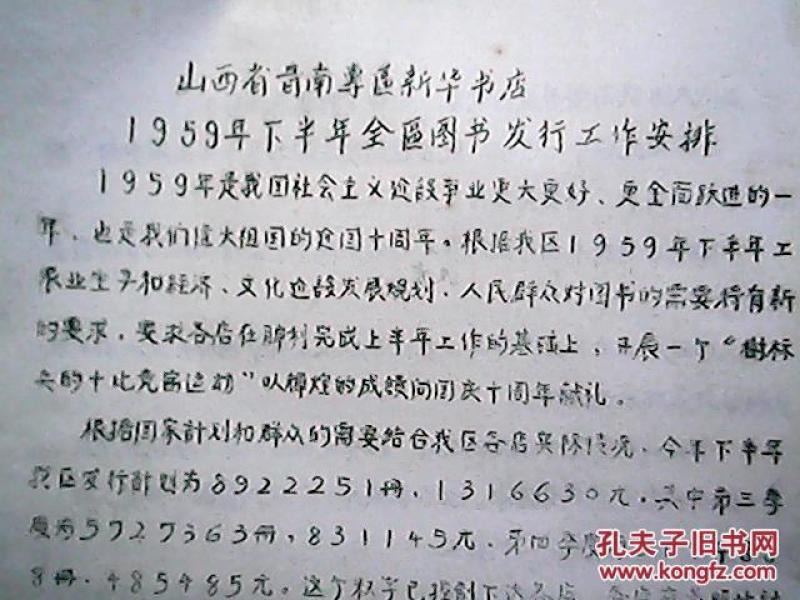 山西省晋南專區新华书店
1959年下半年全區图书发行工作安排
1959年是我国社会主义建設事业更大更好、更全面跃进的一
年、也是我们偉大祖国的建国十周年。根据我区1959年下半年工
农业生产和経济、文化建設发展規划、人民群众对图书的需要将有新
的要求，要求各店在胜利完成上半年工作的基础上，开展一个“樹标
兵的十比竞賽运动”以輝煌的成績向国庆十周年献礼。
根据国家計划和群众的需要結合我区各店实际情况、今年下半年
我区发行計划为8922251册、1316630元，其中第三季
度为5727363册，831145元、第四季度
8册、485485元。这个数字已控制下达各店
孔夫子旧书网
www.kongfz.com